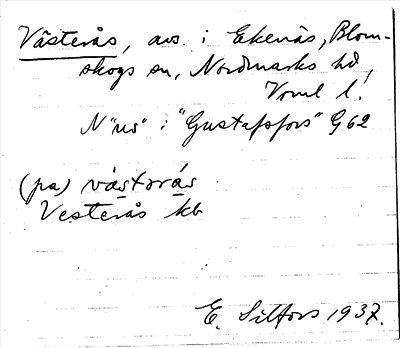 Västerås, avs. i Ekenäs, Blom-
skogs sn, Nordmarks hd,
Vrml l.
N "us" i "Gustafsfors" G62
(pa) västrås
Vesterås kb
E. Silfors 1937.